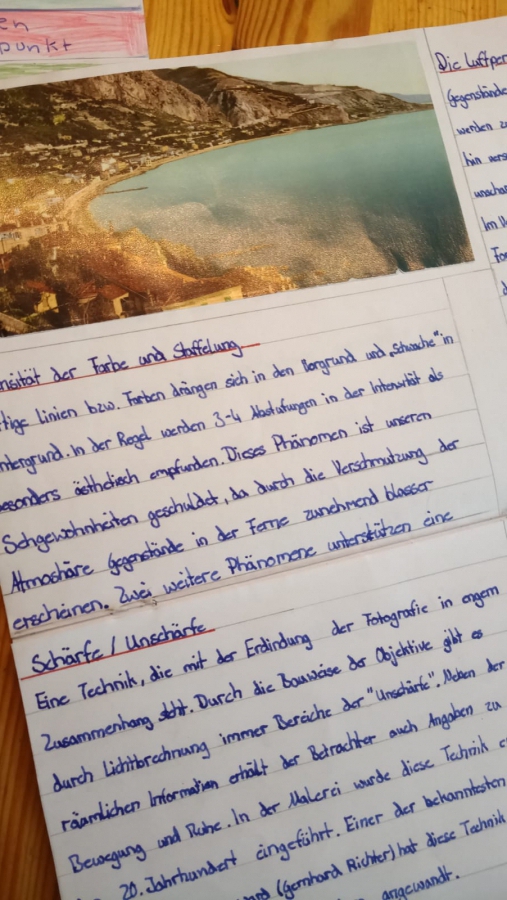 en
punkt
Die Luftper
Gegenstände
werden zu
hin vers
unschar
Im V
For
d
nsität der Farbe und Staffelung
ftige Linien bzw. Farben drängen sich in den Vorgrund und „schwache" in
ntergrund. In der Regel werden 3-4 Abstufungen in der Intensität als
esonders ästhetisch empfunden. Dieses Phänomen ist unseren
Sehgewohnheiten geschuldet, da durch die Verschmutzung der
Atmoshäre Gegenstände in der Ferne zunehmend blasser
erscheinen. Zwei weitere Phänomene unterstützen eine
Schärfe / Unschärfe
Eine Technik, die mit der Erdindung der Fotografie in engem
Zusammenhang steht. Durch die Bauweise der Objektive gibt es
durch Lichtbrechnung immer Bereiche der "Unschärfe". Neben der
räumlichen Information erhält der Betrachter auch Angaben zu
Bewegung und Ruhe. In der Malerei wurde diese Technik e
20. Jahrhundert eingeführt. Einer der bekanntesten
(Gernhard Richter) hat diese Technik
angewandt.